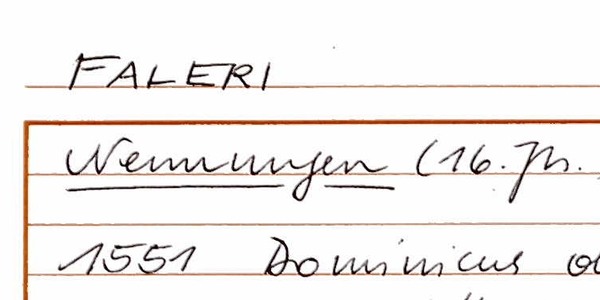 FALERI
Nennungen (16. Jh.
1551 Dominicus